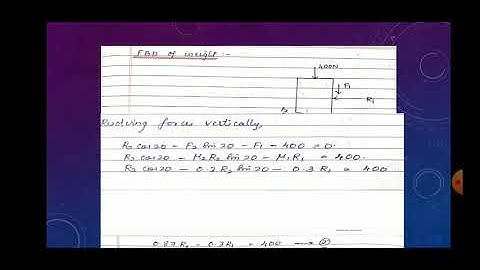 FBD of weight :-
400N
F1
R1
R2
Resolving forces vertically,
R2 cos20 - F2 Sin20 - F1 - 400 = 0.
R2 cos20 - M2R2 Sin20 - M1R1 = 400.
R2 cos20 - 0.2R2 Sin20 - 0.3R1 = 400
0.87R2 - 0.3R1 = 400 → ②